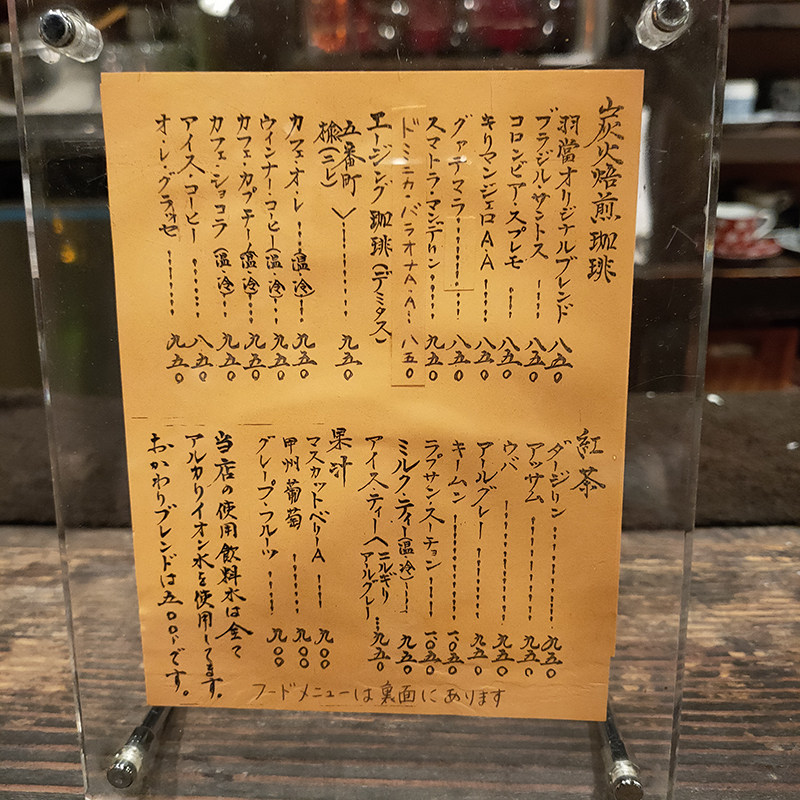 炭火焙煎珈琲
羽當オリジナルブレンド 八五〇
ブラジル・サントス……八五〇
コロンビア・スプレモ……八五〇
キリマンジェロA・A……八五〇
グァテマラ……八五〇
スマトラ・マンデリン……九五〇
ドミニカ・バラオナA・A…八五〇
エージング珈琲(デミタス)
五番町
楡(ニレ)……九五〇
カフェ・オ・レ…(温・冷)…九五〇
ウインナー・コーヒー(温・冷)…九五〇
カフェ・カプチーノ(温・冷)…九五〇
カフェ・ショコラ(温・冷)…九五〇
アイス・コーヒー……八五〇
オ・レ・グラッセ……九五〇
紅茶
ダージリン……九五〇
アッサム……九五〇
ウバ……九五〇
アールグレー……九五〇
キームン……一〇五〇
ラプサン・スーチョン……一〇五〇
ミルク・ティー(温・冷)…九五〇
アイス・ティー
ニルギリ
アールグレー…九五〇
果汁
マスカットベリーA……九〇〇
甲州葡萄……九〇〇
グレープ・フルーツ……九〇〇
当店の使用飲料水は全て
アルカリイオン水を使用してます。
おかわりブレンドは五〇〇です。
フードメニューは裏面にあります